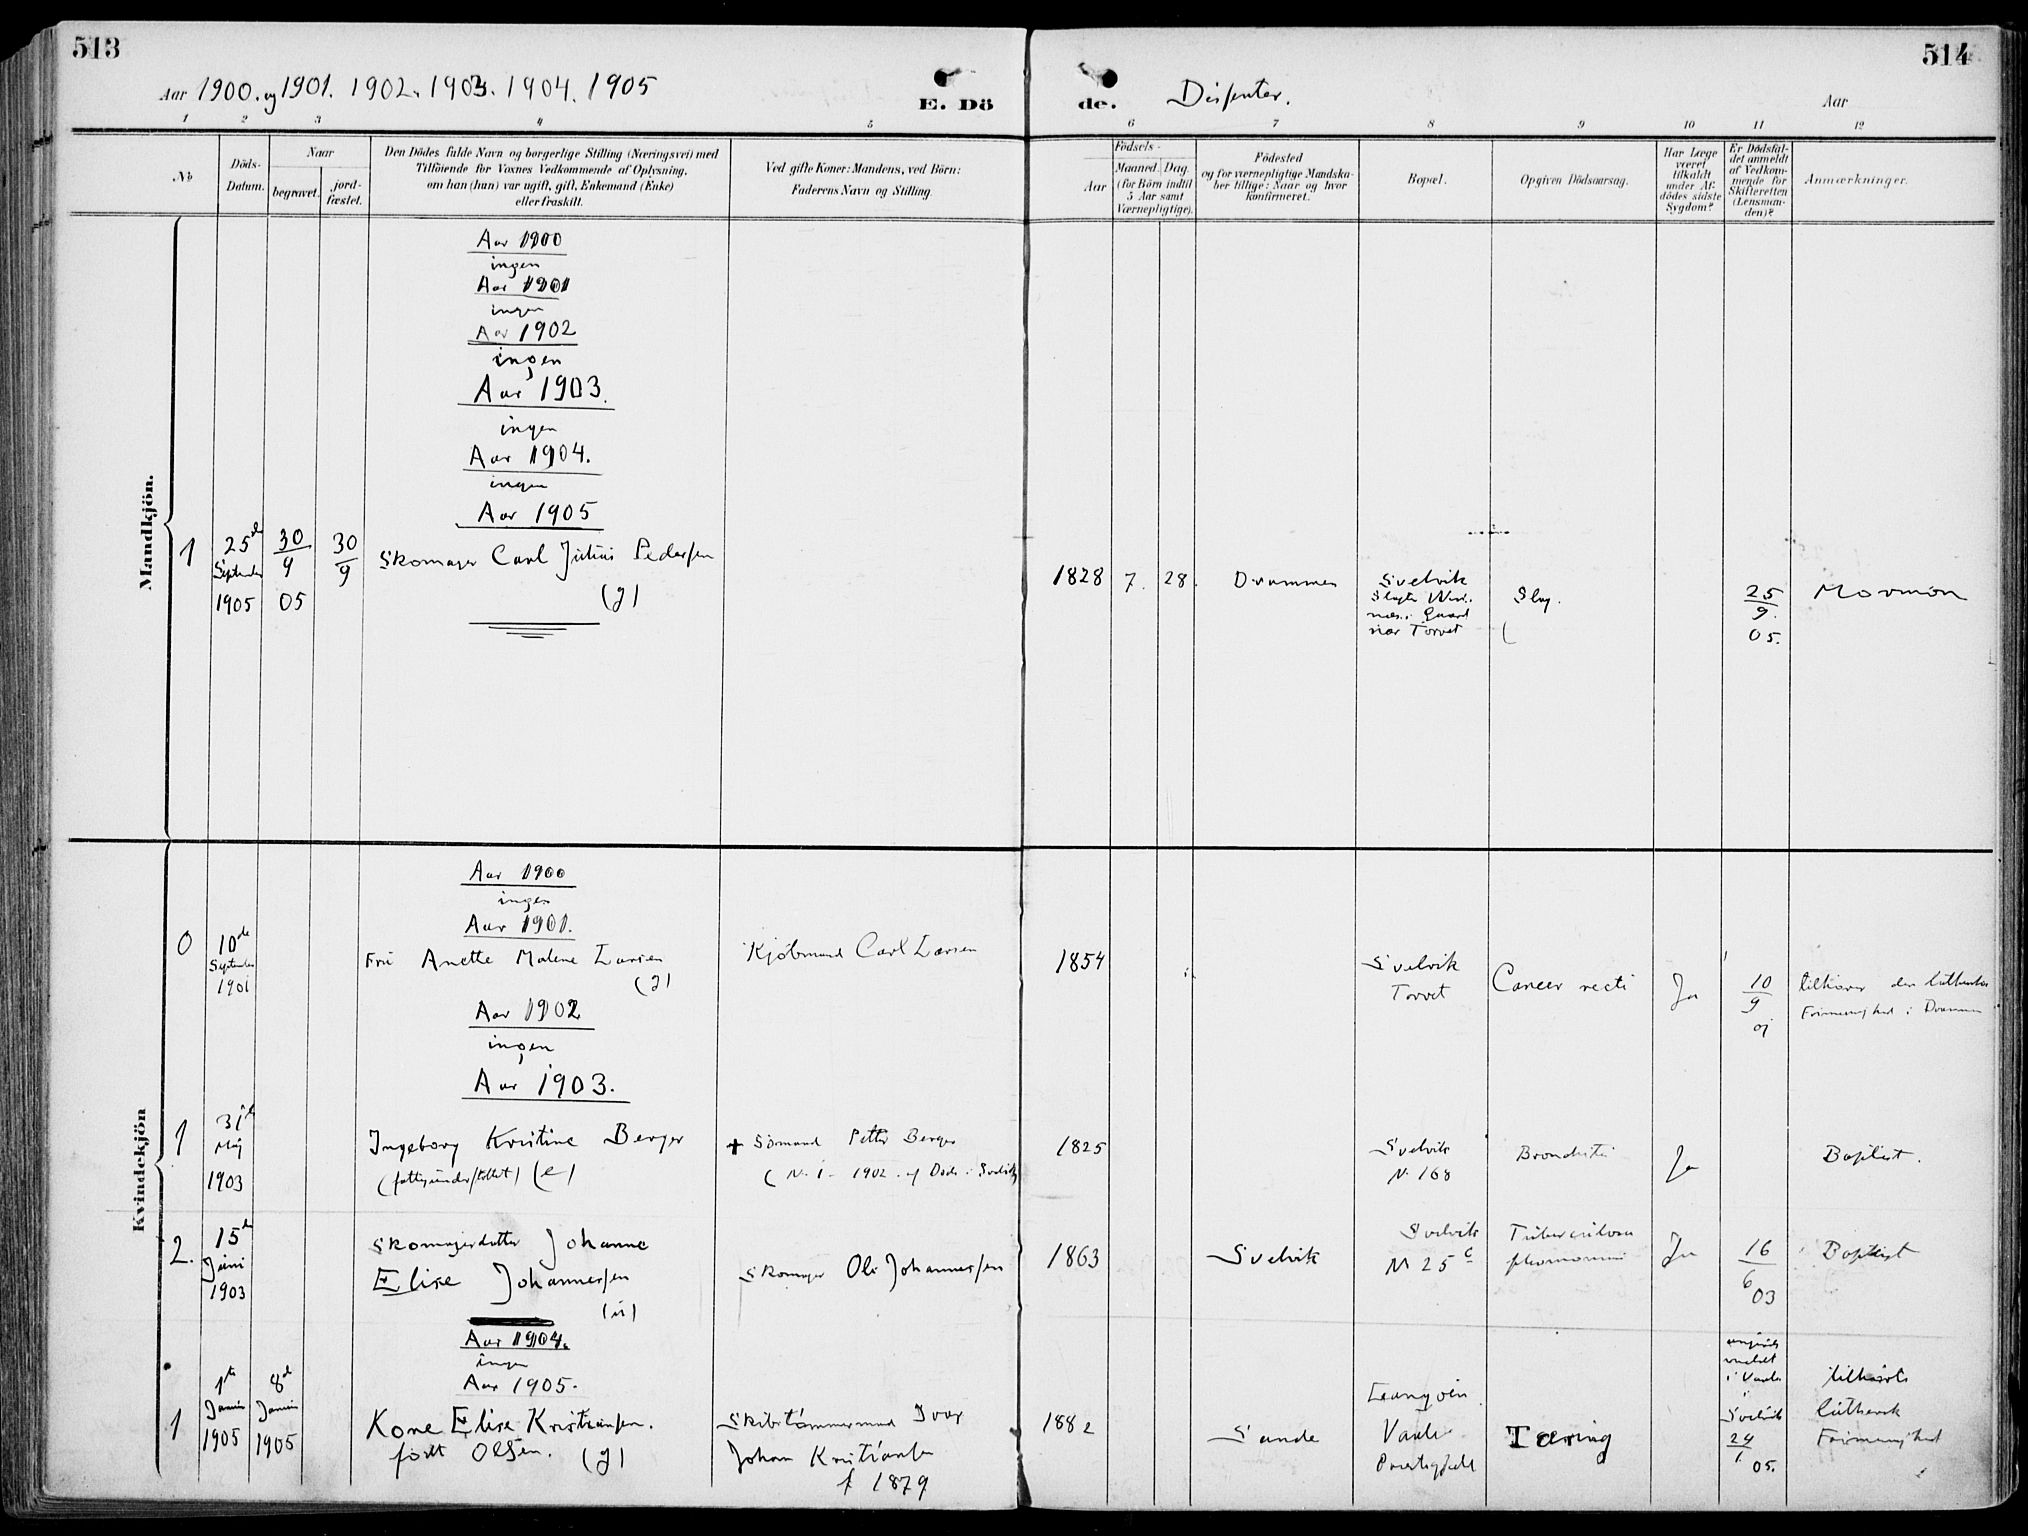 513
514
Aar 1900. og 1901. 1902. 1903. 1904. 1905
E. Dö
de.
Dissenter.
Aar
1 2 3 4 5 6 7 8 9 10 11 12
No
Döds-
Datum.
Naar
begravet.
jord-
fæstet.
Den Dödes fulde Navn og borgerlige Stilling (Næringsvei) med
Tilföiende for Voxnes Vedkommende af Oplysning,
om han (hun) var ugift, gift, Enkemand (Enke)
eller fraskilt.
Ved gifte Koner: Mandens, ved Börn:
Faderens Navn og Stilling.
Födsels-
Aar
Maaned. Dag.
(for Börn indtil
5 Aar samt
Værnepligtige).
Födested
og for værnepligtige Mandska-
ber tillige: Naar og hvor
konfirmeret.
Bopæl.
Opgiven Dödsaarsag.
Har Læge
været
tilkaldt
under Af-
dödes sidste
Sygdom?
Er Dödsfal-
det anmeldt
af Vedkom-
mende for
Skifteretten
(Lensman-
den)?
Anmærkninger.
Mandkjön.
Aar 1900
ingen
Aar 1901
ingen
Aar 1902
ingen
Aar 1903.
ingen
Aar 1904.
ingen
Aar 1905
1
25de
September
1905
30
9
05
30
9
Skomager Carl Julius Pedersen
(g)
1828
7.
28.
Drammen
Svelvik
Gaard
nær Torvet
Slag.
25
9.
05.
Mormon
Kvindekjön
Aar 1900
ingen
Aar 1901.
0
10de
September
1901
Fru Anette Malene Larsen
(g)
Kjöbmand Carl Larsen
1854
Svelvik
Torvet
Cancer recti
Ja
10
9
01
tilhører den lutherske
Frimenighed i Drammen
Aar 1902
ingen
Aar 1903.
1
31te
Maj
1903
Ingeborg Kristine Berger
(fattigunderstöttet) (e)
+ Sömand Petter Berger
(N. 1 - 1902
1825
Svelvik
N. 168
Ja
Baptist.
2.
15de
Juni
1903
Skomagerdatter Johanne
Elise Johannessen
(u)
Skomager Ole Johannessen
1863
Svelvik
Svelvik
N 25 c
Ja
16
6
03
Baptist
Aar 1904.
ingen
Aar 1905.
1
1te
Januar
1905
8de
Januar
1905
Kone Elise Kristiansen.
født Olsen. (g)
Skibstömmermand Ivar
Johan Kristiansen
f 1879
1882
Sande
Tæring
i
Svelvik
24
1
05.
tilhörte
luthersk
Frimenighed